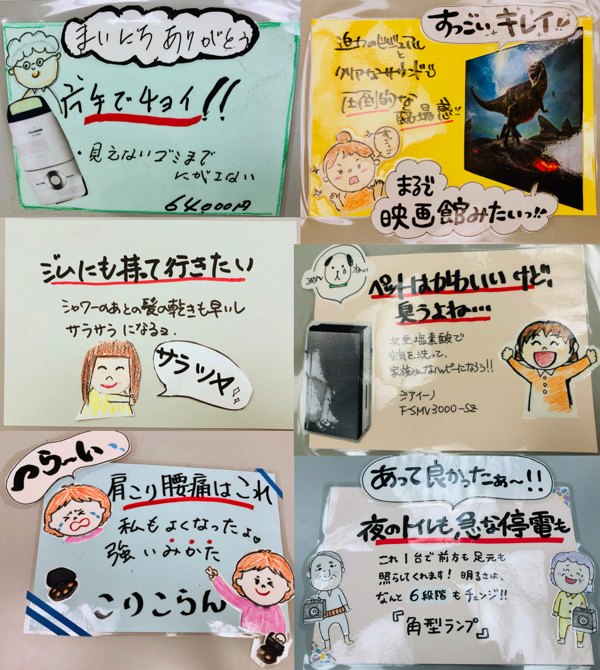 まいにち ありがとう
片手でチョイ!!
・見えないゴミまで
にがさない
64000円
すっごいキレイ!!
迫力のビジュアルと
クリアなサウンドで
圧倒的な
臨場感!!
すっごーい
まるで
映画館みたいっ!!
ジムにも持って行きたい
シャワーのあとの髪の乾きも早いし
サラサラになるヨ。
サラツヤ
ペットはかわいいけど、
臭うよね…
次亜塩素酸で
空気を洗って、
家族みんなハッピーになろう!!
ジアイーノ
F-SMV3000-SZ
つら〜い
肩こり腰痛はこれ
私もよくなったよ♡
強いみかた
こりこらん
あって良かったぁ〜!!
夜のトイレも急な停電も
これ1台で前方も足元も
照らしてくれます! 明るさは、
なんと6段階もチェンジ!!
『角型ランプ』